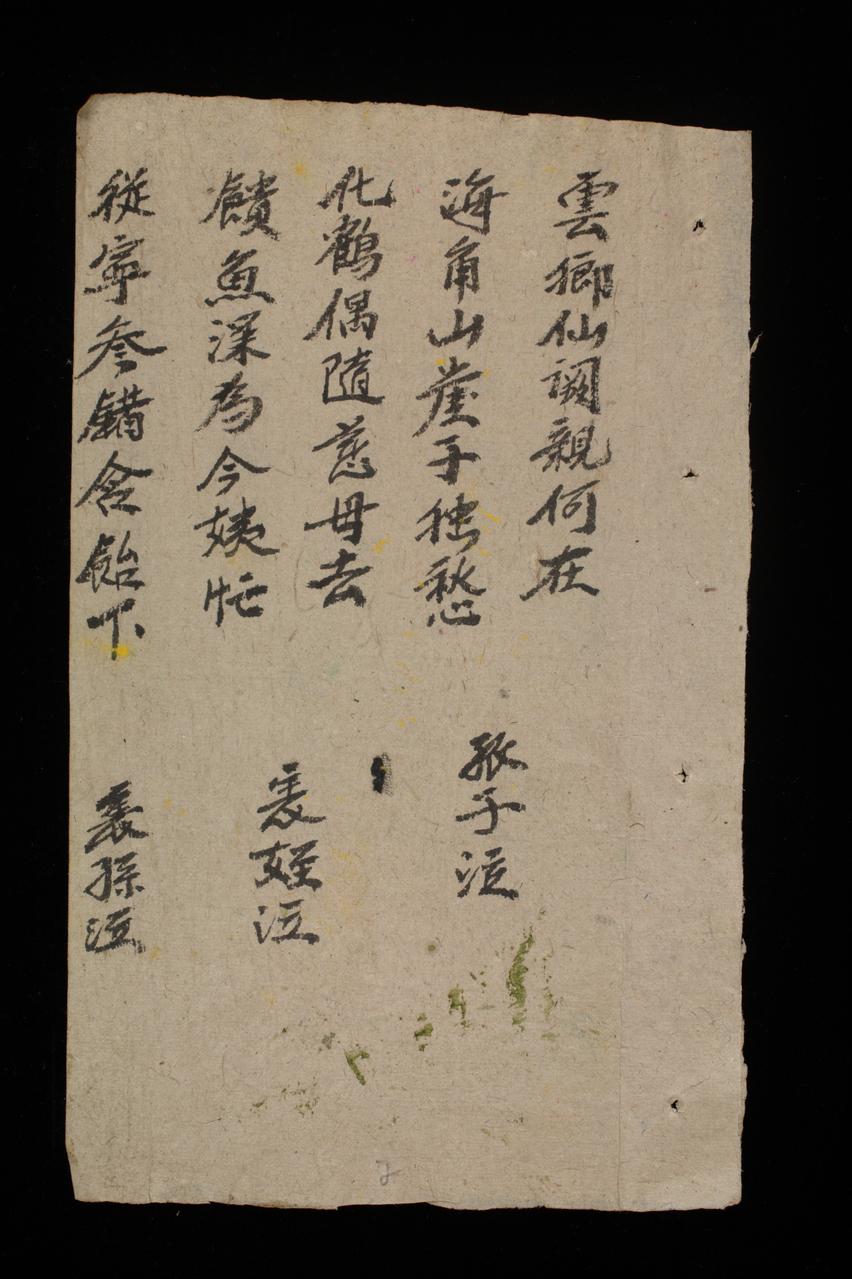 雲鄉仙調親何在
海角山崖子独愁
孤子泣
化鶴偶隨慈母去
饋魚深為今姨忙
衰姪泣
從寧參錯含飴下
衰孫泣